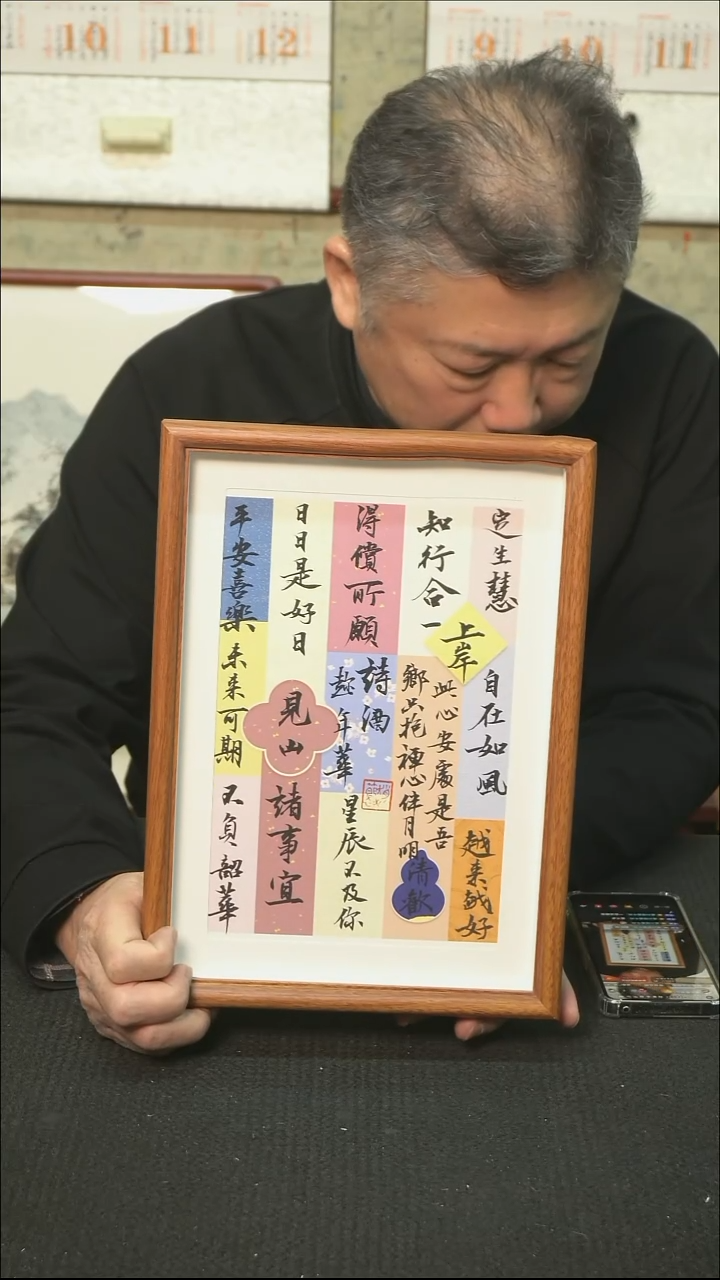 10
11
12
9
10
11
定生慧
自在如風
越来越好
知行合一
上岸
此心安處是吾
鄉只抱禅心伴月明
清歡
得償所願
詩酒
趁年華
星辰不及你
日日是好日
見山
諸事宜
平安喜樂
未来可期
不負韶華